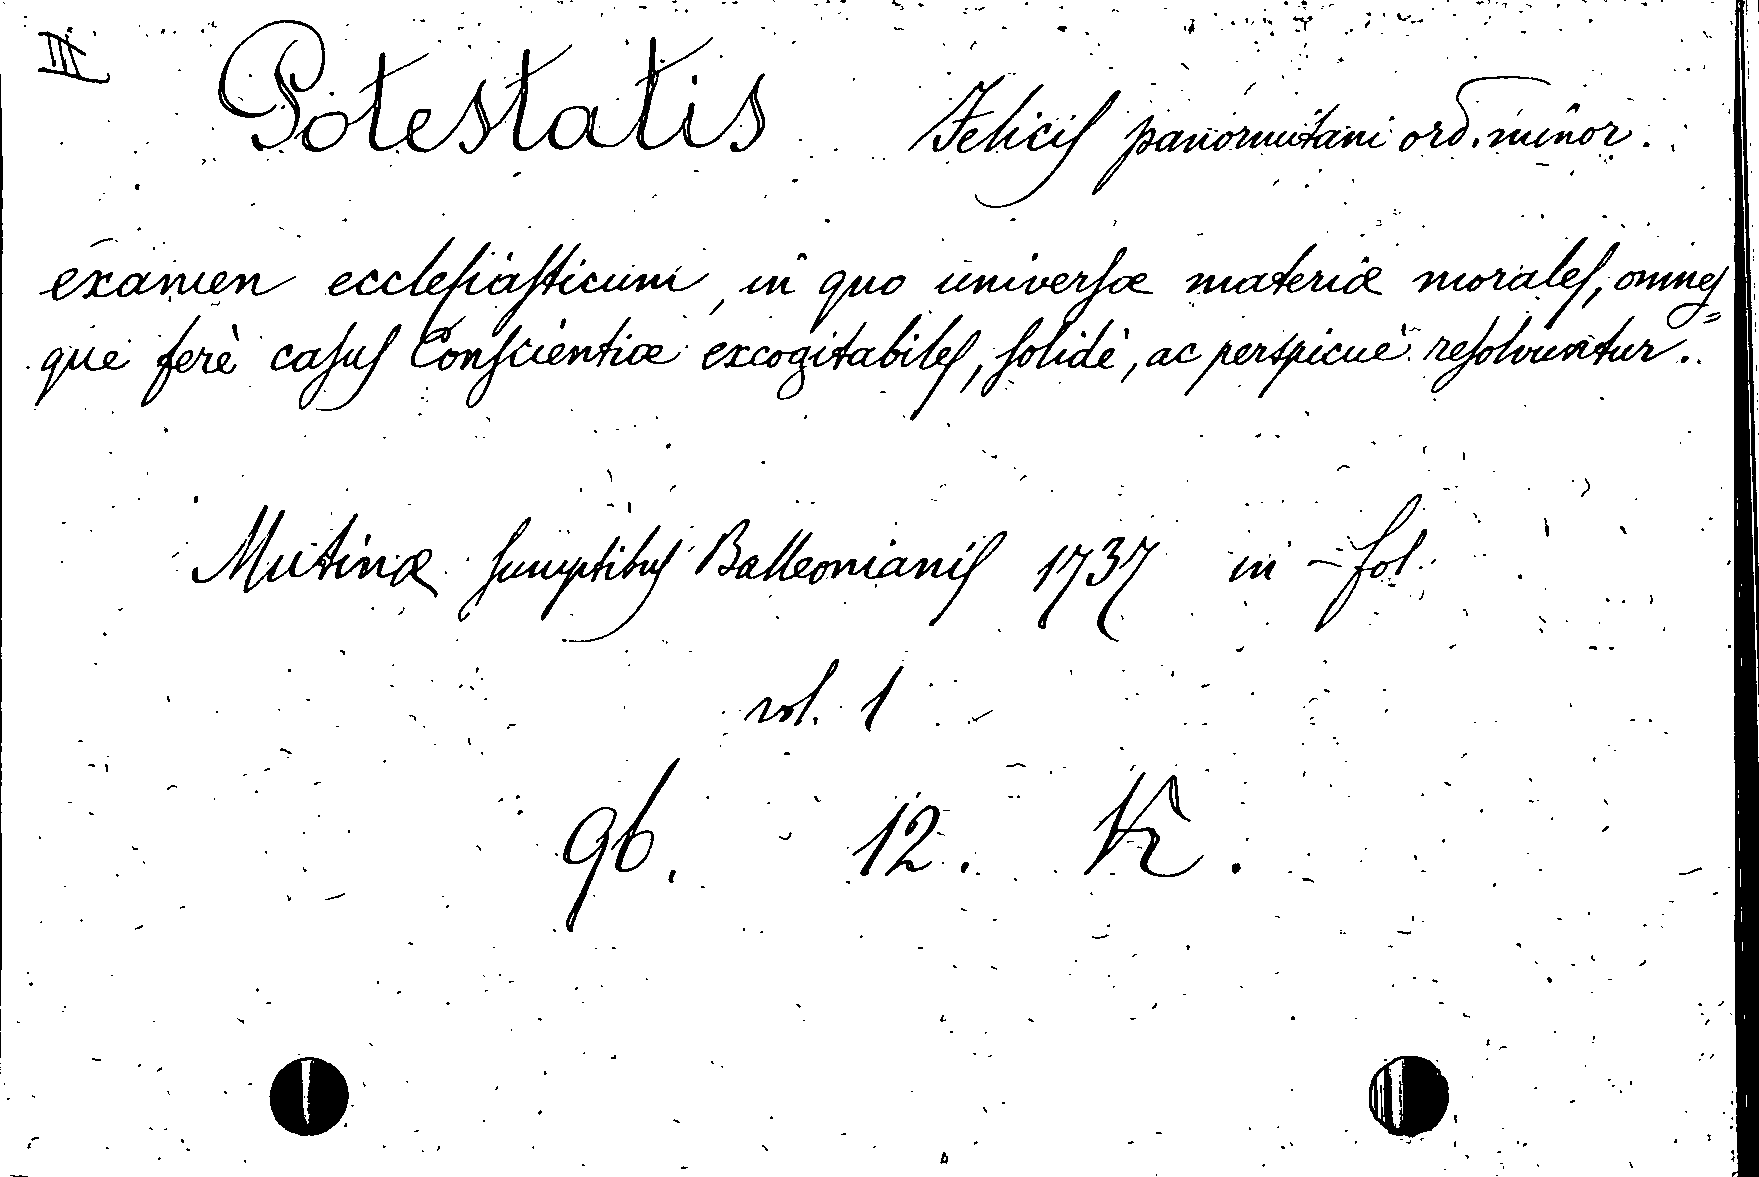 III
Potestatis Felicis panormitani ord. minor.
examen ecclesiasticum, in quo universæ materiæ morales, omnes=
que ferè casus Conscientiæ excogitabiles, solidè, ac perspicuè resolvuntur.
Mutinæ sumptibus Balleonianis 1737 in-fol.
vol. 1
96. 12. K.